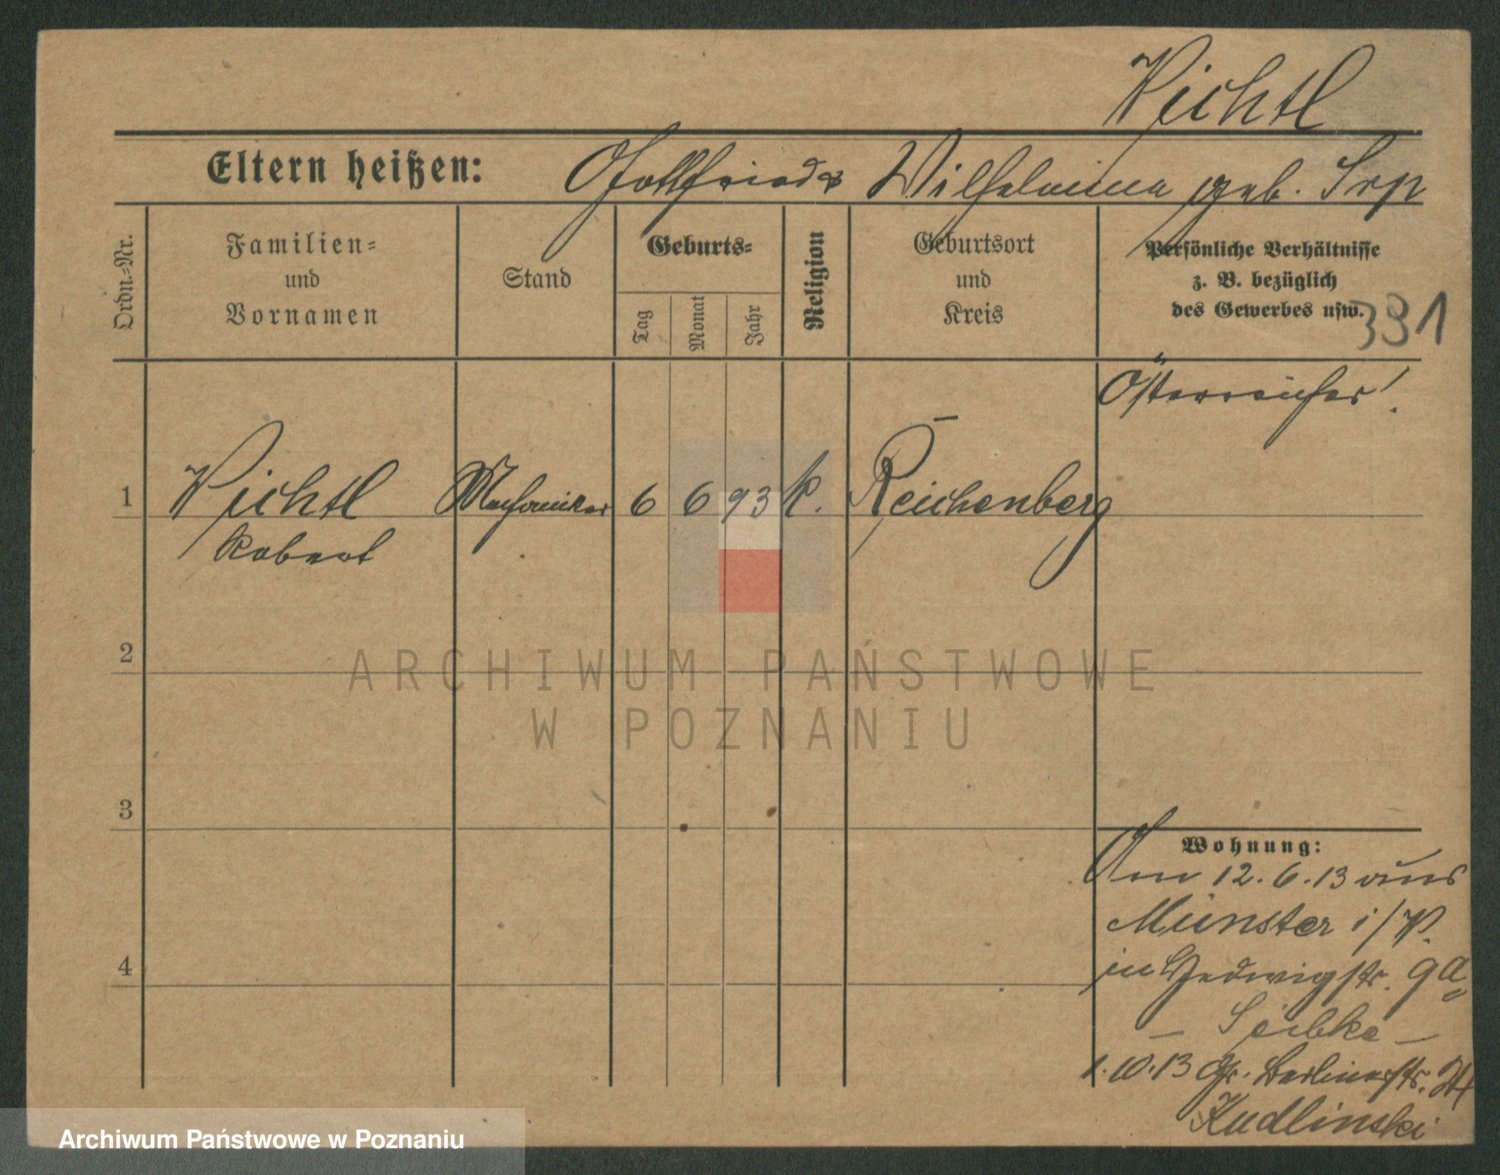 Vichtl
Eltern heißen: Gottfried & Wilhelmina geb. Srp
Ordn.-Nr.
Familien-
und
Vornamen
Stand
Geburts-
Tag
Monat
Jahr
Religion
Geburtsort
und
Kreis
Persönliche Verhältnisse
z. B. bezüglich
des Gewerbes usw.
391
Österreicher!
1 Vichtl Mechaniker 6 6 93 k. Reichenberg
Robert
2
3
4
Wohnung:
Am 12.6.13 aus
Münster i/W.
in Hedwigstr. 9a
1.10.13 Gr. Berlinerstr.
Kudlinski
ARCHIWUM PAŃSTWOWE
W POZNANIU
Archiwum Państwowe w Poznaniu